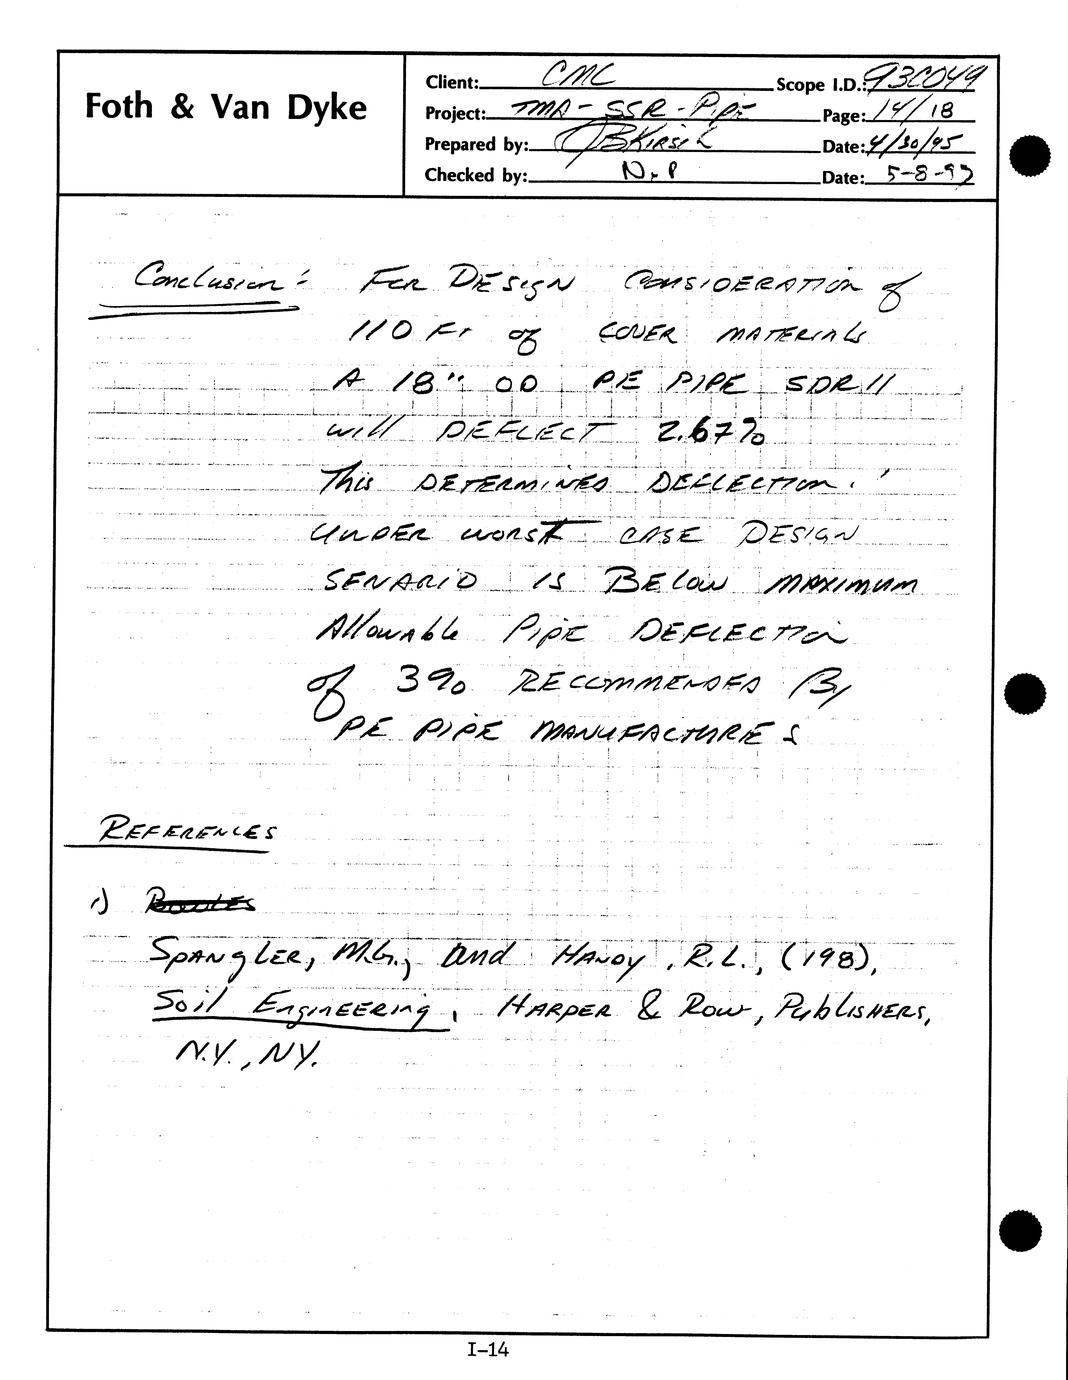 Foth & Van Dyke
Client: CMC Scope I.D.: 93C049
Project: TMA-SSR-PIPE Page: 14/18
Prepared by: JBKIRSCH Date: 4/30/95
Checked by: N.P Date: 5-8-95
Conclusion: FOR DESIGN CONSIDERATION of
110 FT of COVER MATERIALS
A 18" OD PE PIPE SDR 11
will DEFLECT 2.67%
This DETERMINED DEFLECTION
UNDER WORST CASE DESIGN
SENARIO IS BELOW MAXIMUM
Allowable PIPE DEFLECTION
of 3% RECOMMENDED By
PE PIPE MANUFACTURES
REFERENCES
1) Bowles
SPANGLER, M.G., and HANDY, R.L., (198),
Soil ENGINEERING, HARPER & ROW, PUBLISHERS,
N.Y., NY.
I-14